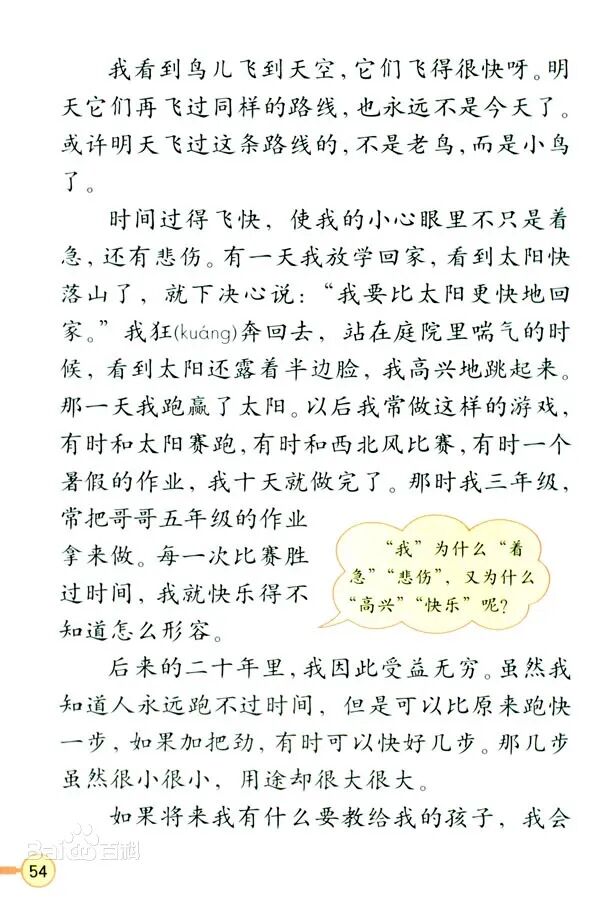 我看到鸟儿飞到天空，它们飞得很快呀。明
天它们再飞过同样的路线，也永远不是今天了。
或许明天飞过这条路线的，不是老鸟，而是小鸟
了。
时间过得飞快，使我的小心眼里不只是着
急，还有悲伤。有一天我放学回家，看到太阳快
落山了，就下决心说：“我要比太阳更快地回
家。”我狂(kuáng)奔回去，站在庭院里喘气的时
候，看到太阳还露着半边脸，我高兴地跳起来。
那一天我跑赢了太阳。以后我常做这样的游戏，
有时和太阳赛跑，有时和西北风比赛，有时一个
暑假的作业，我十天就做完了。那时我三年级，
常把哥哥五年级的作业
拿来做。每一次比赛胜
过时间，我就快乐得不
知道怎么形容。
“我”为什么“着
急”“悲伤”，又为什么
“高兴”“快乐”呢？
后来的二十年里，我因此受益无穷。虽然我
知道人永远跑不过时间，但是可以比原来跑快
一步，如果加把劲，有时可以快好几步。那几步
虽然很小很小，用途却很大很大。
如果将来我有什么要教给我的孩子，我会
Baidu百科
54